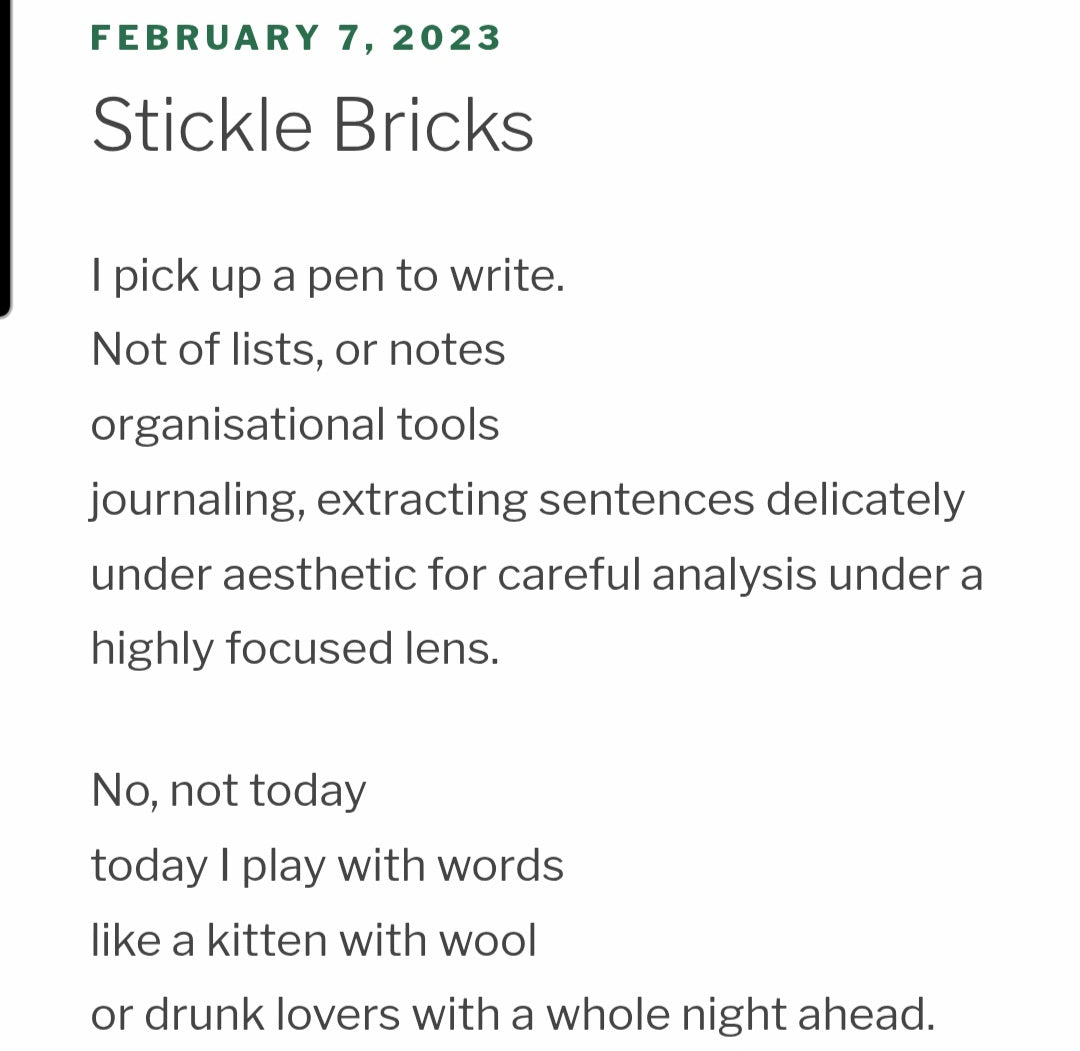 FEBRUARY 7, 2023
Stickle Bricks
I pick up a pen to write.
Not of lists, or notes
organisational tools
journaling, extracting sentences delicately
under aesthetic for careful analysis under a
highly focused lens.
No, not today
today I play with words
like a kitten with wool
or drunk lovers with a whole night ahead.